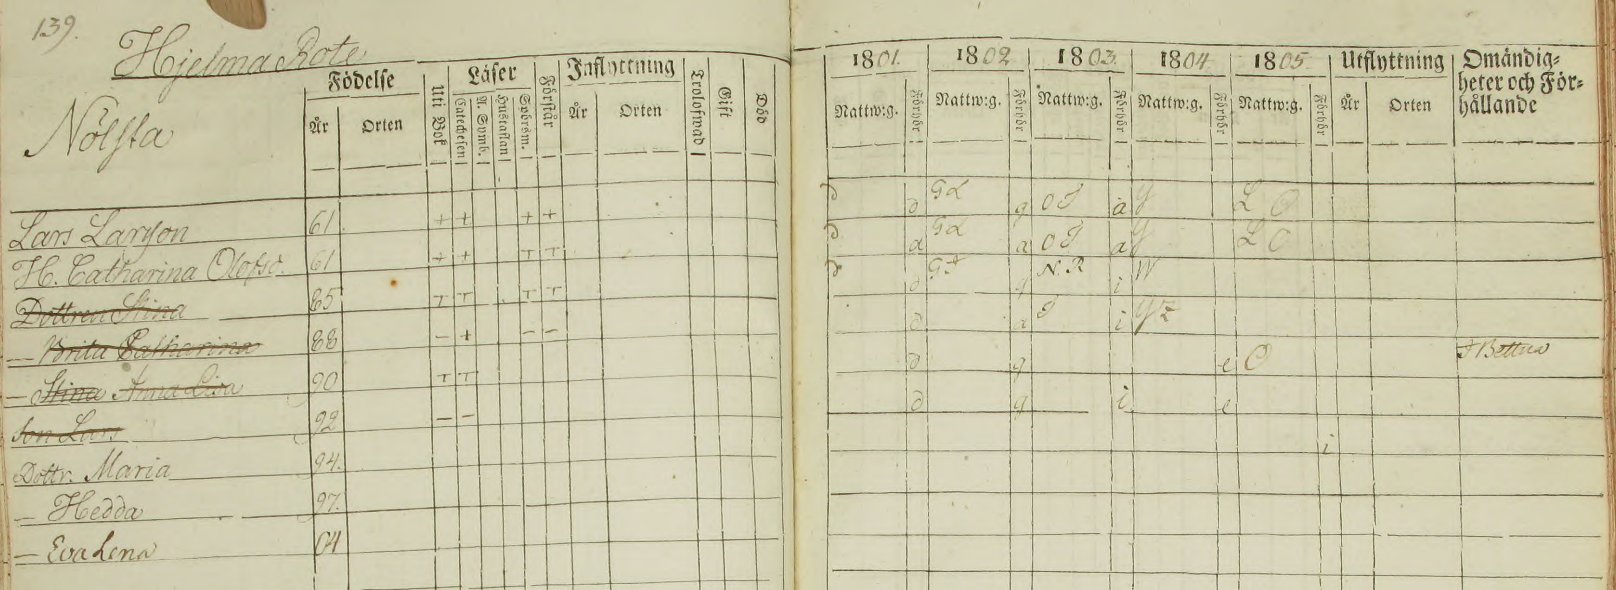 139.
Hjelma Rote
Nölsta
Födelse
År Orten
Uti Bok
Läser
Catechesen
A. Symb.
Hustaflan
Spörsm.
Förstår
Inflyttning
År Orten
Trolofwad
Gift
Död
1801. 1802 1803. 1804 1805 Utflyttning Omändig=
heter och För=
hållande
Nattw:g. Förhör Nattw:g. Förhör Nattw:g. Förhör Nattw:g. Förhör Nattw:g. Förhör År Orten
Lars Larsson 61 + + + + ∂ ∂ G L g O S a y L O
H. Catharina Olofsd. 61 + + + + ∂ a G L a O S a y L O
Dottren Stina 85 + + + + ∂ ∂ g N. R i W
— Brita Catharina 88 — + — — ∂ i
— Stina Anna Lisa 90 + + ∂ g e O
Son Lars 92 — — ∂ g i e
Dottr. Maria 94. i
— Hedda 97.
— Eva Lena 04